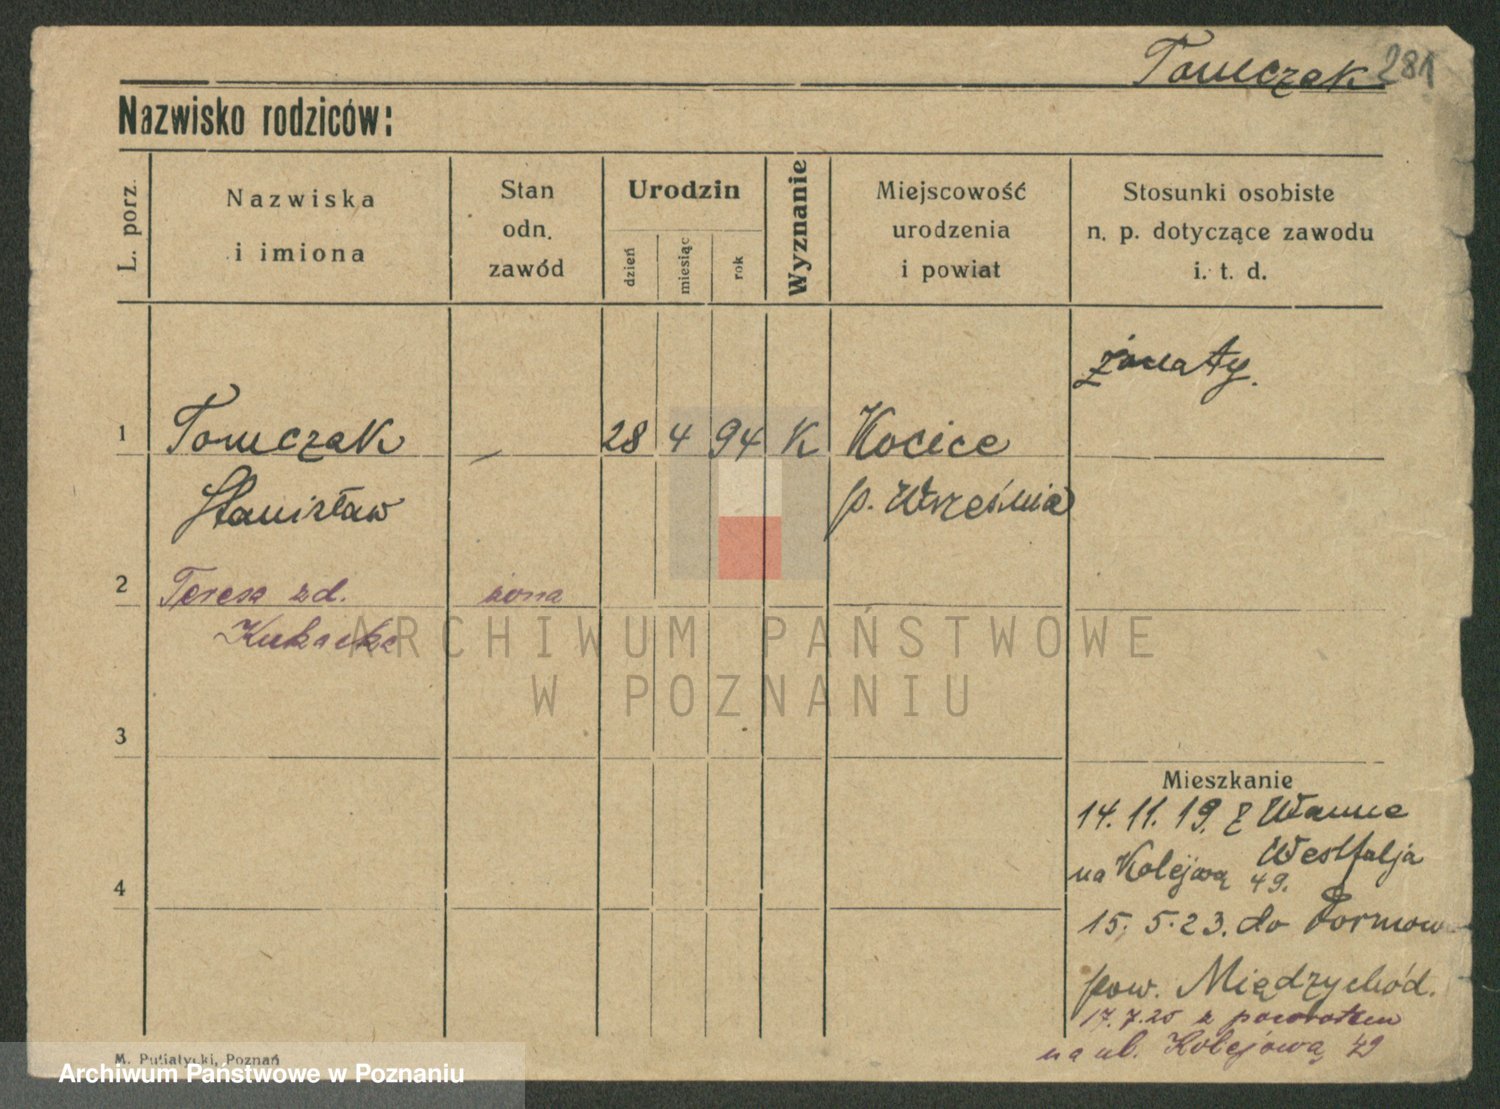 Tomczak 281
Nazwisko rodziców:
L. porz.
Nazwiska
i imiona
Stan
odn.
zawód
Urodzin
dzień
miesiąc
rok
Wyznanie
Miejscowość
urodzenia
i powiat
Stosunki osobiste
n. p. dotyczące zawodu
i. t. d.
żonaty.
1 Tomczak — 28 4 94 K Kocice
Stanisław p. Września
2 Teresa zd. żona
ARCHIWUM PAŃSTWOWE
W POZNANIU
3
Mieszkanie
14.11.19. z Wanne
Westfalja
na Kolejową 49.
4
15.5.23. do
pow. Międzychód.
17.7.25 z powrotem
na ul. Kolejową 49
M. Putiatycki, Poznań
Archiwum Państwowe w Poznaniu